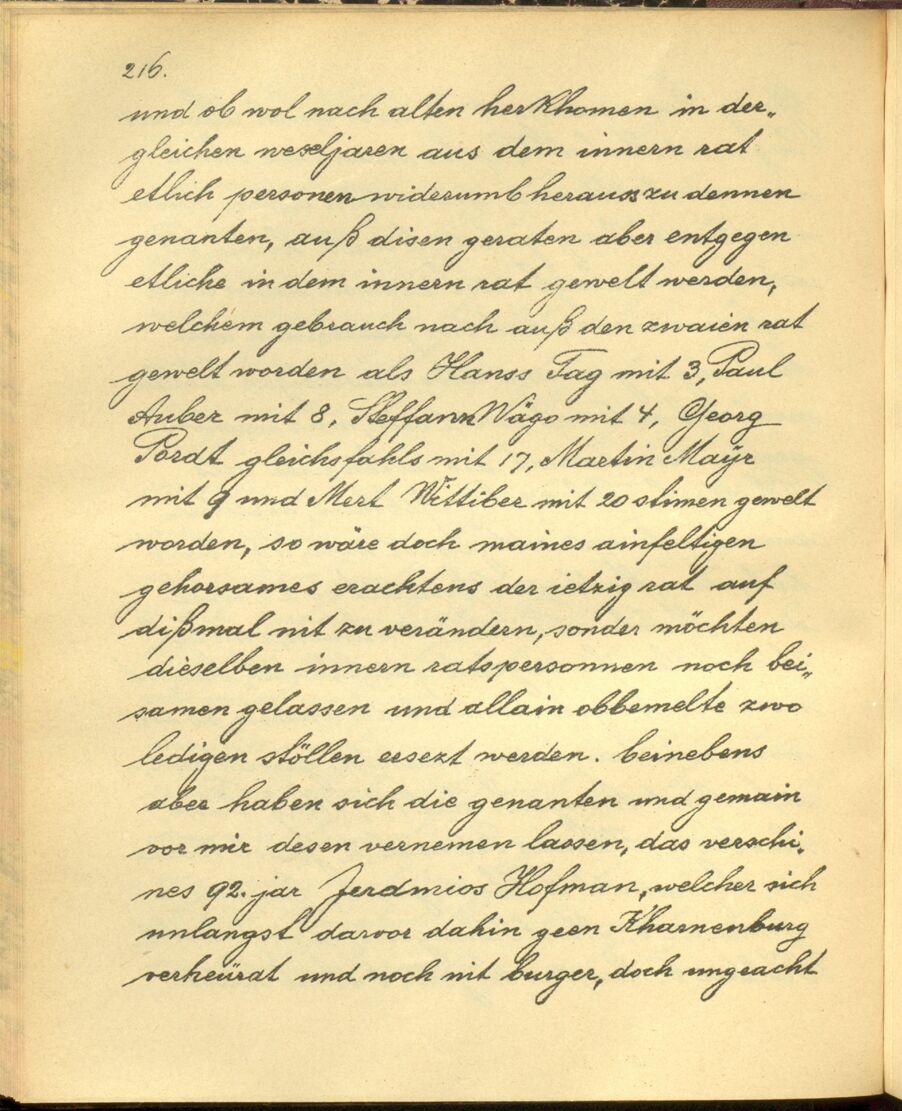 216.
und ob wol nach alten herkhomen in der„
gleichen weseljaren aus dem innern rat
etlich personen widerumb herauss zu dennen
genanten, auß disen geraten aber entgegen
etliche in dem innern rat gewelt werden,
welchem gebrauch nach auß den zwaien rat
gewelt worden als Hanss Tag mit 3, Paul
Auber mit 8, Steffann Wägo mit 4, Georg
Pordt gleichsfahls mit 17, Martin Mayr
mit 9 und Mert Wittiber mit 20 stimen gewelt
worden, so wäre doch maines ainfeltigen
gehorsames erachtens der ietzig rat auf
dißmal nit zu verändern, sonder möchten
dieselben innern ratspersonnen noch bei„
samen gelassen und allain obbemelte zwo
ledigen stöllen ersezt werden. beinebens
aber haben sich die genanten und gemain
vor mir desen vernemen lassen, das verschi„
nes 92. jar Jerdmios Hofman, welcher sich
unlangst darvor dahin geen Kharnenburg
verheürat und noch nit burger, doch ungeacht